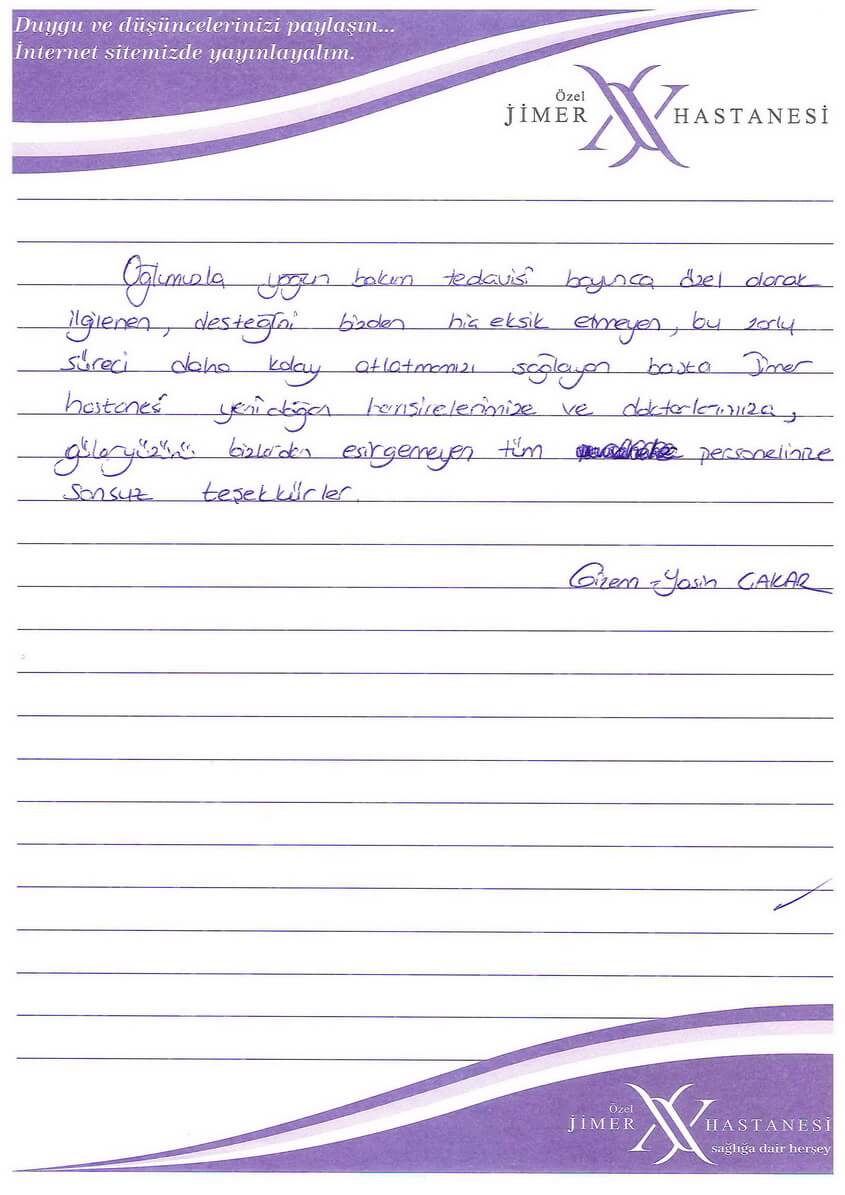 Duygu ve düşüncelerinizi paylaşın...
İnternet sitemizde yayınlayalım.
Özel
JİMER HASTANESİ
Oğlumuzla yoğun bakım tedavisi boyunca özel olarak
ilgilenen, desteğini bizden hiç eksik etmeyen, bu zorlu
süreci daha kolay atlatmamızı sağlayan başta Jimer
hastanesi yenidoğan hemşirelerimize ve doktorlarımıza,
güleryüzünü bizlerden esirgemeyen tüm personelinize
sonsuz teşekkürler.
Gizem - Yasin ÇAKAR
Özel
JİMER HASTANESİ
sağlığa dair herşey